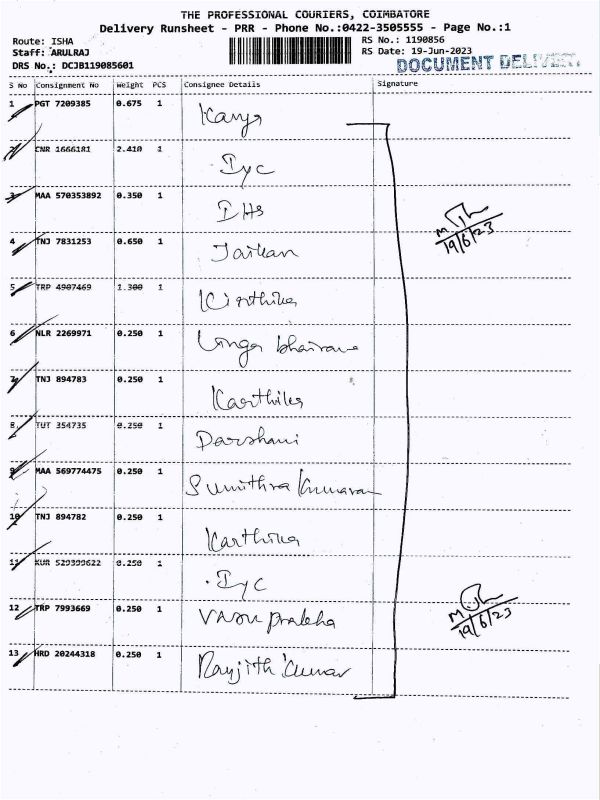 THE PROFESSIONAL COURIERS, COIMBATORE
Delivery Runsheet - PRR - Phone No.:0422-3505555 - Page No.:1
Route: ISHA
RS No.: 1190856
Staff: ARULRAJ
RS Date: 19-Jun-2023
DRS No.: DCJB119085601
DOCUMENT DELIVERY
S No Consignment No Weight PCS Consignee Details Signature
1 PGT 7209385 0.675 1 Kanya
2 CNR 1666181 2.410 1 Iyc
3 MAA 570353892 0.350 1 IHS
4 TNJ 7831253 0.650 1
5 TRP 4907469 1.300 1 Kirthika
6 NLR 2269971 0.250 1 Linga bhairave
7 TNJ 894783 0.250 1 Karthika
8 TUT 354735 0.250 1 Darshani
9 MAA 569774475 0.250 1 Sumithra Kumaran
10 TNJ 894782 0.250 1 Karthika
11 KUR 529399622 0.250 1 Iyc
12 TRP 7993669 0.250 1 VASU prabha
13 HRD 20244318 0.250 1 Ranjith Kumar
19/6/23
19/6/23